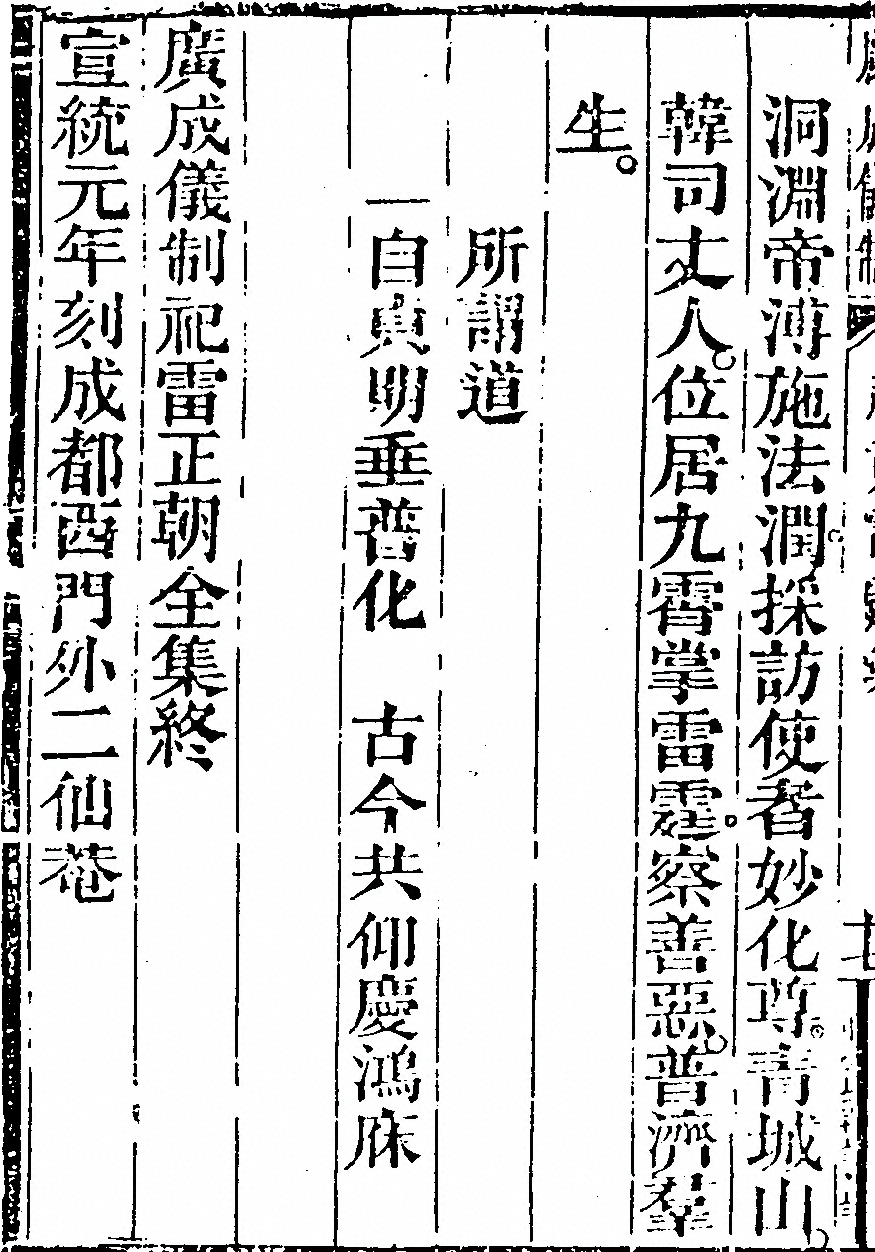 洞淵帝溥施法潤。採訪使者妙化尊。青城山。
韓司丈人。位居九霄掌雷霆。察善惡。普濟羣
生。
所謂道
一自真明垂普化　古今共仰慶鴻庥
廣成儀制祀雷正朝全集終
宣統元年刻成都西門外二仙菴